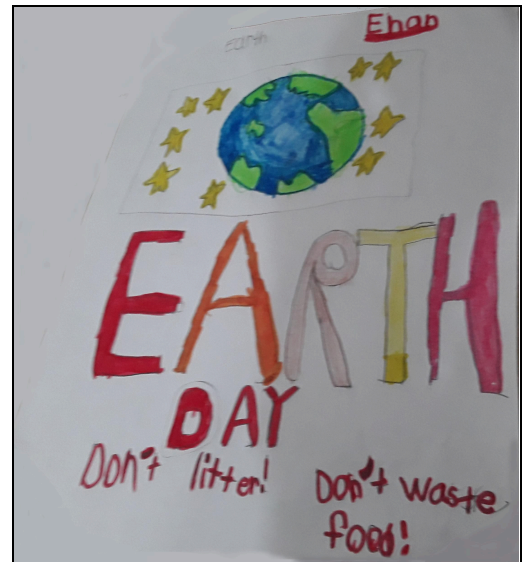 Earth
Ehan
EARTH
DAY
Don't litter!
Don't waste
food!